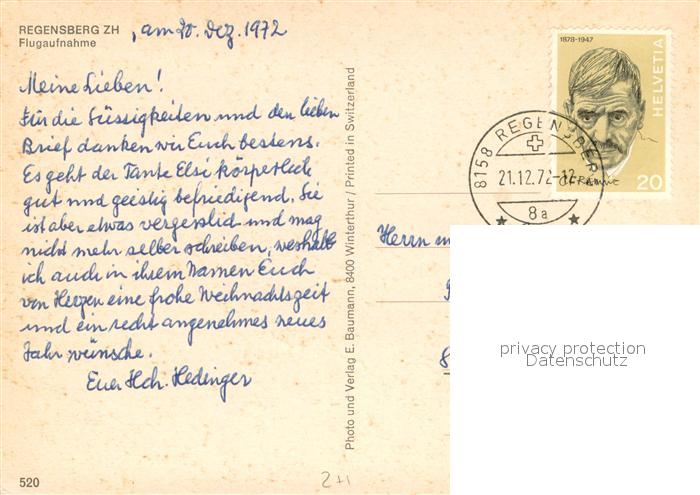 REGENSBERG ZH
Flugaufnahme
, am 20. Dez. 1972
Meine Lieben!
Für die Süssigkeiten und den lieben
Brief danken wir Euch bestens.
Es geht der Tante Elsi körperlich
gut und geistig befriedigend. Sie
ist aber etwas vergesslich und mag
nicht mehr selber schreiben, weshalb
ich auch in ihrem Namen Euch
von Herzen eine frohe Weihnachtszeit
und ein recht angenehmes neues
Jahr wünsche.
Euer Hch. Hedinger
520
Photo und Verlag E. Baumann, 8400 Winterthur / Printed in Switzerland
1878-1947
HELVETIA
20
8158 REGENSBERG
21.12.72-12
8a
Herrn
privacy protection
Datenschutz